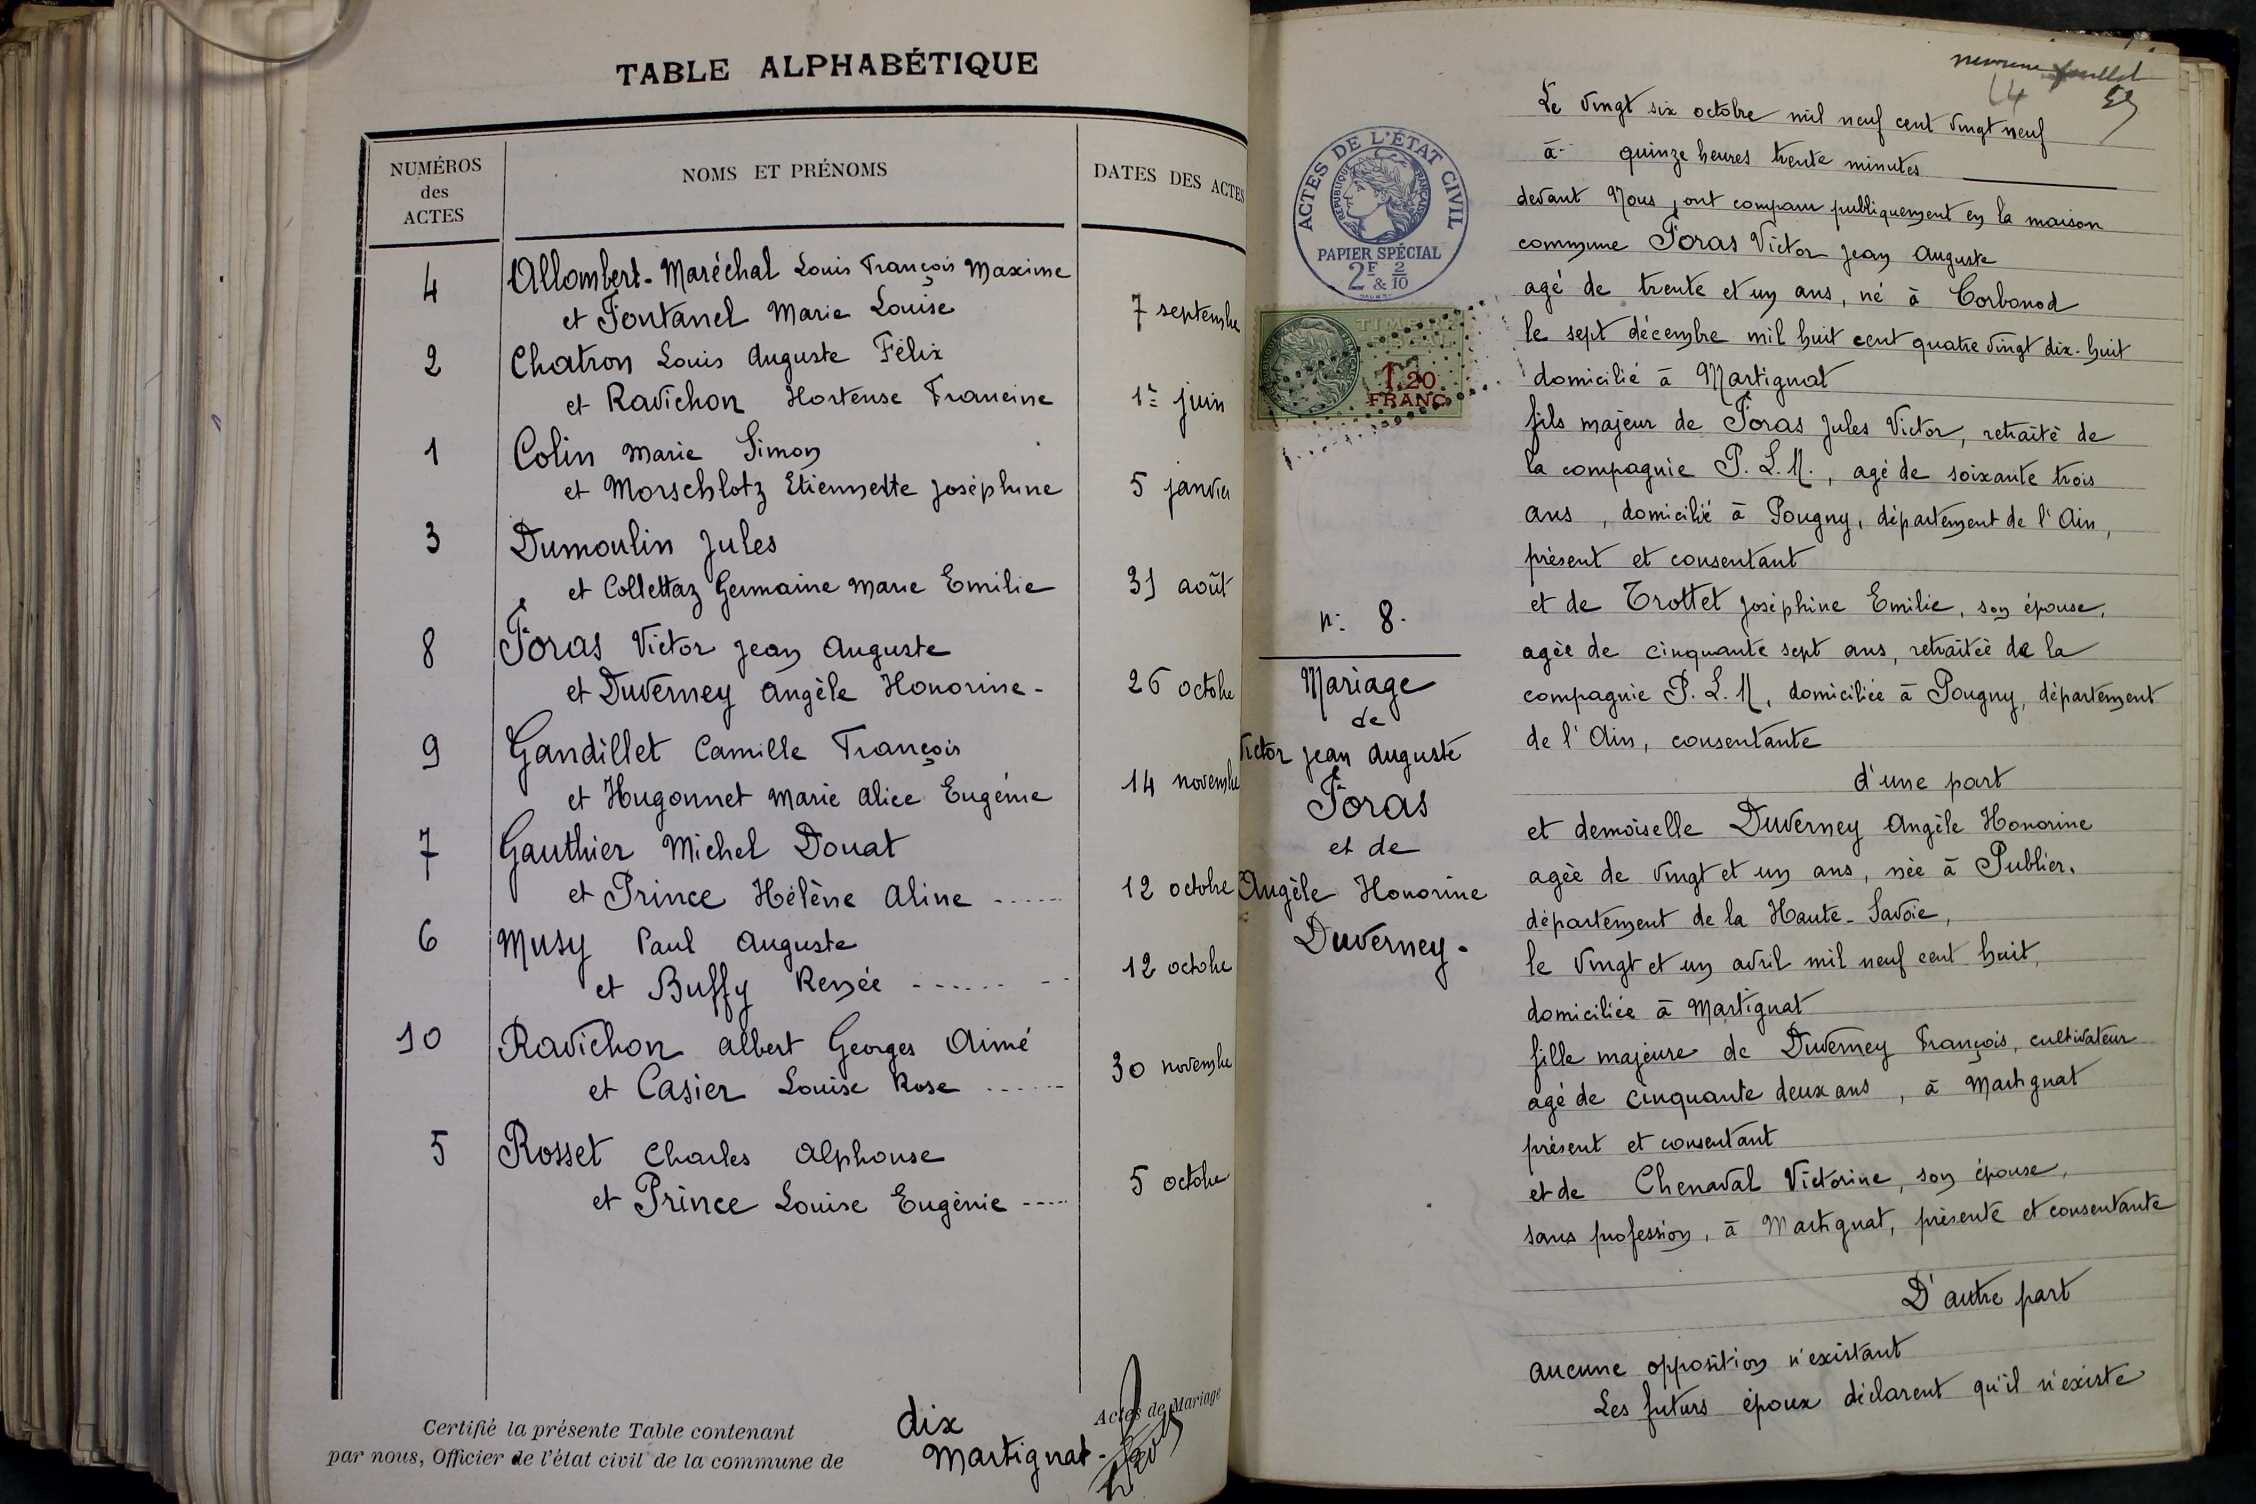 TABLE ALPHABÉTIQUE
NUMÉROS
des
ACTES
NOMS ET PRÉNOMS
DATES DES ACTES
4 Allombert-Maréchal Louis François Maxime
et Fontanel Marie Louise 7 septembre
2 Chatron Louis Auguste Félix
et Ravichon Hortense Francine 1er juin
1 Colin Marie Simon
et Morschlotz Etiennette Joséphine 5 janvier
3 Dumoulin Jules
et Collettaz Germaine Marie Emilie 31 août
8 Foras Victor Jean Auguste
et Duverney Angèle Honorine - 26 octobre
9 Gandillet Camille François
et Hugonnet Marie Alice Eugénie 14 novembre
7 Gauthier Michel Donat
et Prince Hélène Aline 12 octobre
6 Musy Paul Auguste
et Buffy Renée 12 octobre
10 Ravichon Albert Georges Aimé
et Casier Louise Rose 30 novembre
5 Rosset Charles Alphonse
et Prince Louise Eugénie 5 octobre
Certifié la présente Table contenant dix Actes de Mariage
par nous, Officier de l'état civil de la commune de Martignat-
feuillet
14
ACTES DE L'ÉTAT CIVIL
RÉPUBLIQUE FRANÇAISE
PAPIER SPÉCIAL
2F & 2/10
TIMBRE
FISCAL
1.20
FRANC
n: 8.
Mariage
de
Victor Jean Auguste
Foras
et de
Angèle Honorine
Duverney.
Le vingt six octobre mil neuf cent vingt neuf
à quinze heures trente minutes
devant Nous, ont comparu publiquement en la maison
commune Foras Victor Jean Auguste
agé de trente et un ans, né à Corbonod
le sept décembre mil huit cent quatre vingt dix-huit
domicilié à Martignat
fils majeur de Foras Jules Victor, retraité de
la compagnie P. L. M., agé de soixante trois
ans, domicilié à Pougny, département de l'Ain,
présent et consentant
et de Trottet Joséphine Emilie, son épouse,
agée de cinquante sept ans, retraitée de la
compagnie P. L. M, domiciliée à Pougny, département
de l'Ain, consentante
d'une part
et demoiselle Duverney Angèle Honorine
agée de vingt et un ans, née à Publier,
département de la Haute-Savoie,
le vingt et un avril mil neuf cent huit,
domiciliée à Martignat
fille majeure de Duverney François, cultivateur
agé de cinquante deux ans, à Martignat
présent et consentant
et de Chenaval Victorine, son épouse,
sans profession, à Martignat, présente et consentante
D'autre part
aucune opposition n'existant
Les futurs époux déclarent qu'il n'existe